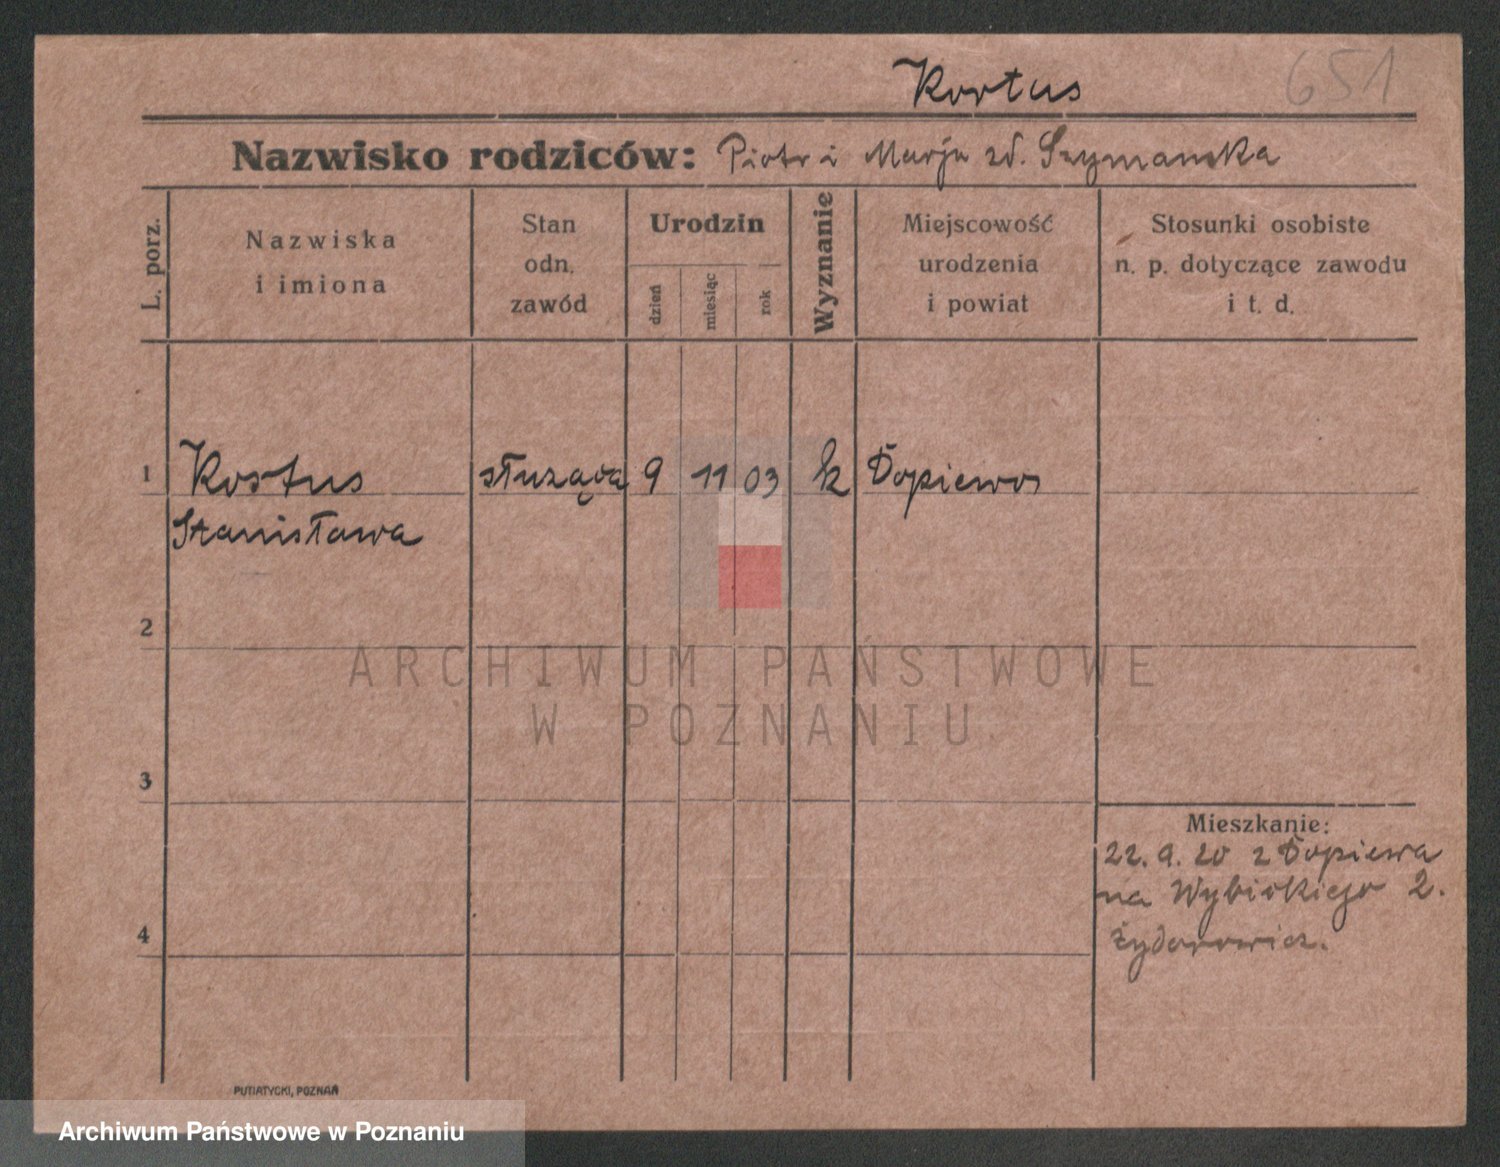 Kortus 651
Nazwisko rodziców: Piotr i Marja zd. Szymanska
L. porz.
Nazwiska
i imiona
Stan
odn.
zawód
Urodzin
dzień
miesiąc
rok
Wyznanie
Miejscowość
urodzenia
i powiat
Stosunki osobiste
n. p. dotyczące zawodu
i t. d.
1 Kostus służąca 9 11 03 k Dopiewos
Stanisława
2
ARCHIWUM PAŃSTWOWE
W POZNANIU
3
Mieszkanie:
22. 9. 20 z Dopiewa
na Wybickiego 2.
4
Żydorowicz.
PUTIATYCKI, POZNAŃ
Archiwum Państwowe w Poznaniu